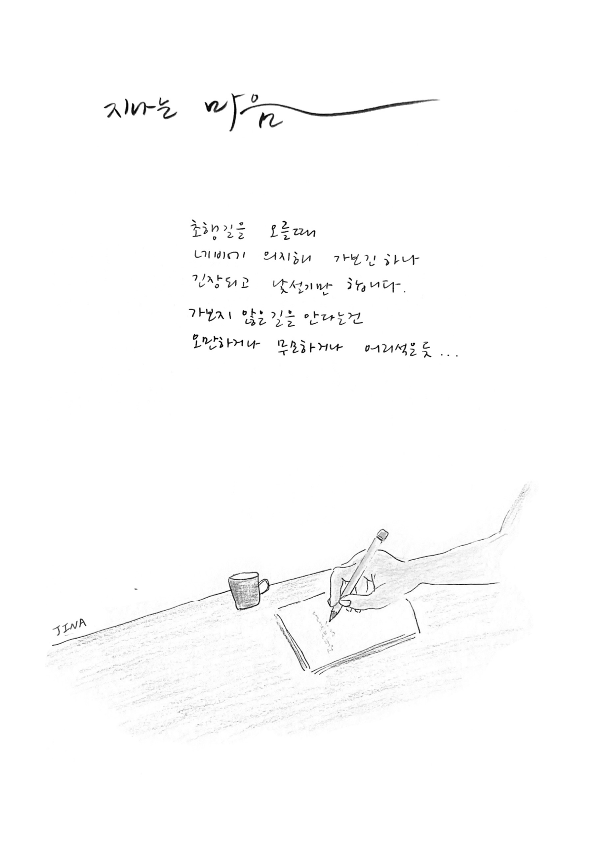 지나는 마음
초행길을 오를때
네비에 의지해 가보긴 하나
긴장되고 낯설기만 합니다.
가보지 않을 길을 안다는건
오만하거나 무모하거나 어리석을 듯...
JINA